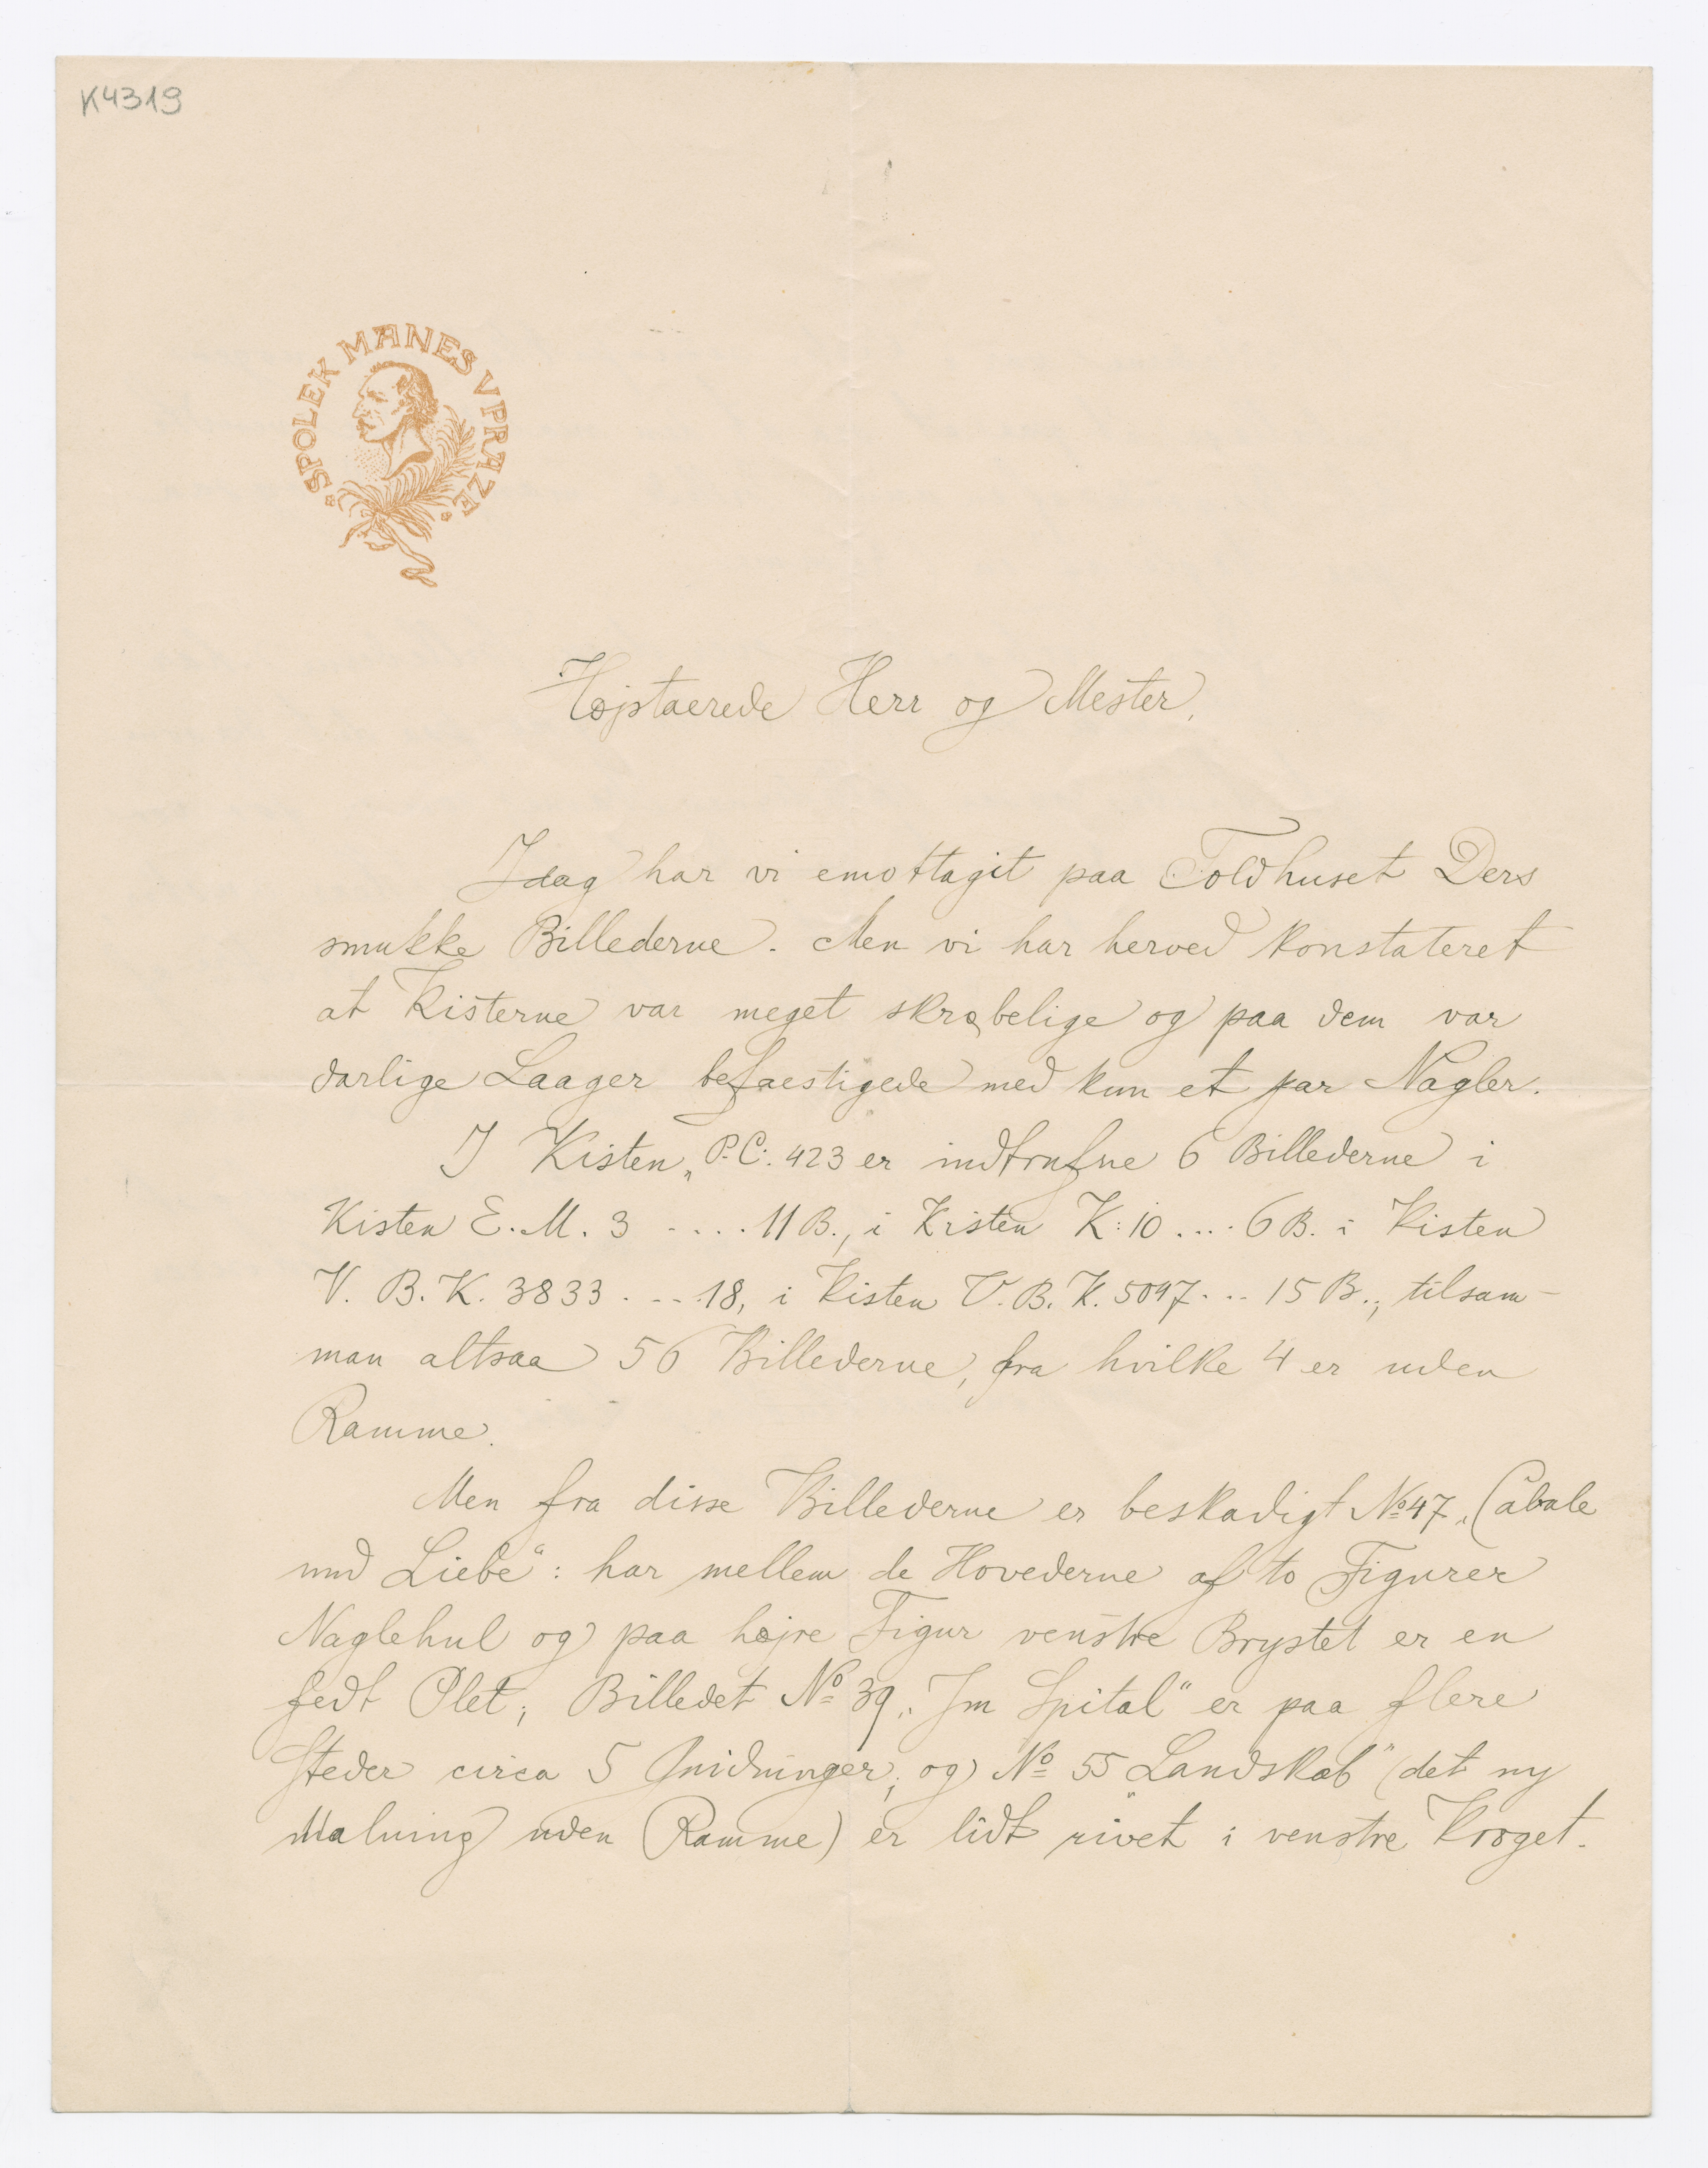 K4319
SPOLEK MANES V PRAZE
Højstaerede Herr og Mester,
Idag har vi emottagit paa Toldhuset Ders
smukke Billederne. Men vi har herved konstateret
at Kisterne var meget skrøbelige og paa dem var
darlige Laager befaestigede med kun et par Nagler.
I Kisten „P.C. 423 er indtrufne 6 Billederne i
Kisten E.M. 3 .... 11 B., i Kisten K: 10 .... 6 B. i Kisten
V. B. K. 3833 .... 18, i Kisten V. B. K. 5097... 15 B., tilsam-
man altsaa 56 Billederne, fra hvilke 4 er uden
Ramme.
Men fra disse Billederne er beskadigt No 47 „Cabale
und Liebe“: har mellem de Hovederne af to Figurer
Naglehul og paa højre Figur venstre Brystet er en
fedt Plet; Billedet No 39 „Im Spital“ er paa flere
Steder circa 5 Gnidninger, og No 55 „Landskab“ (det ny
Malning uden Ramme) er lidt rivet i venstre Kroget.